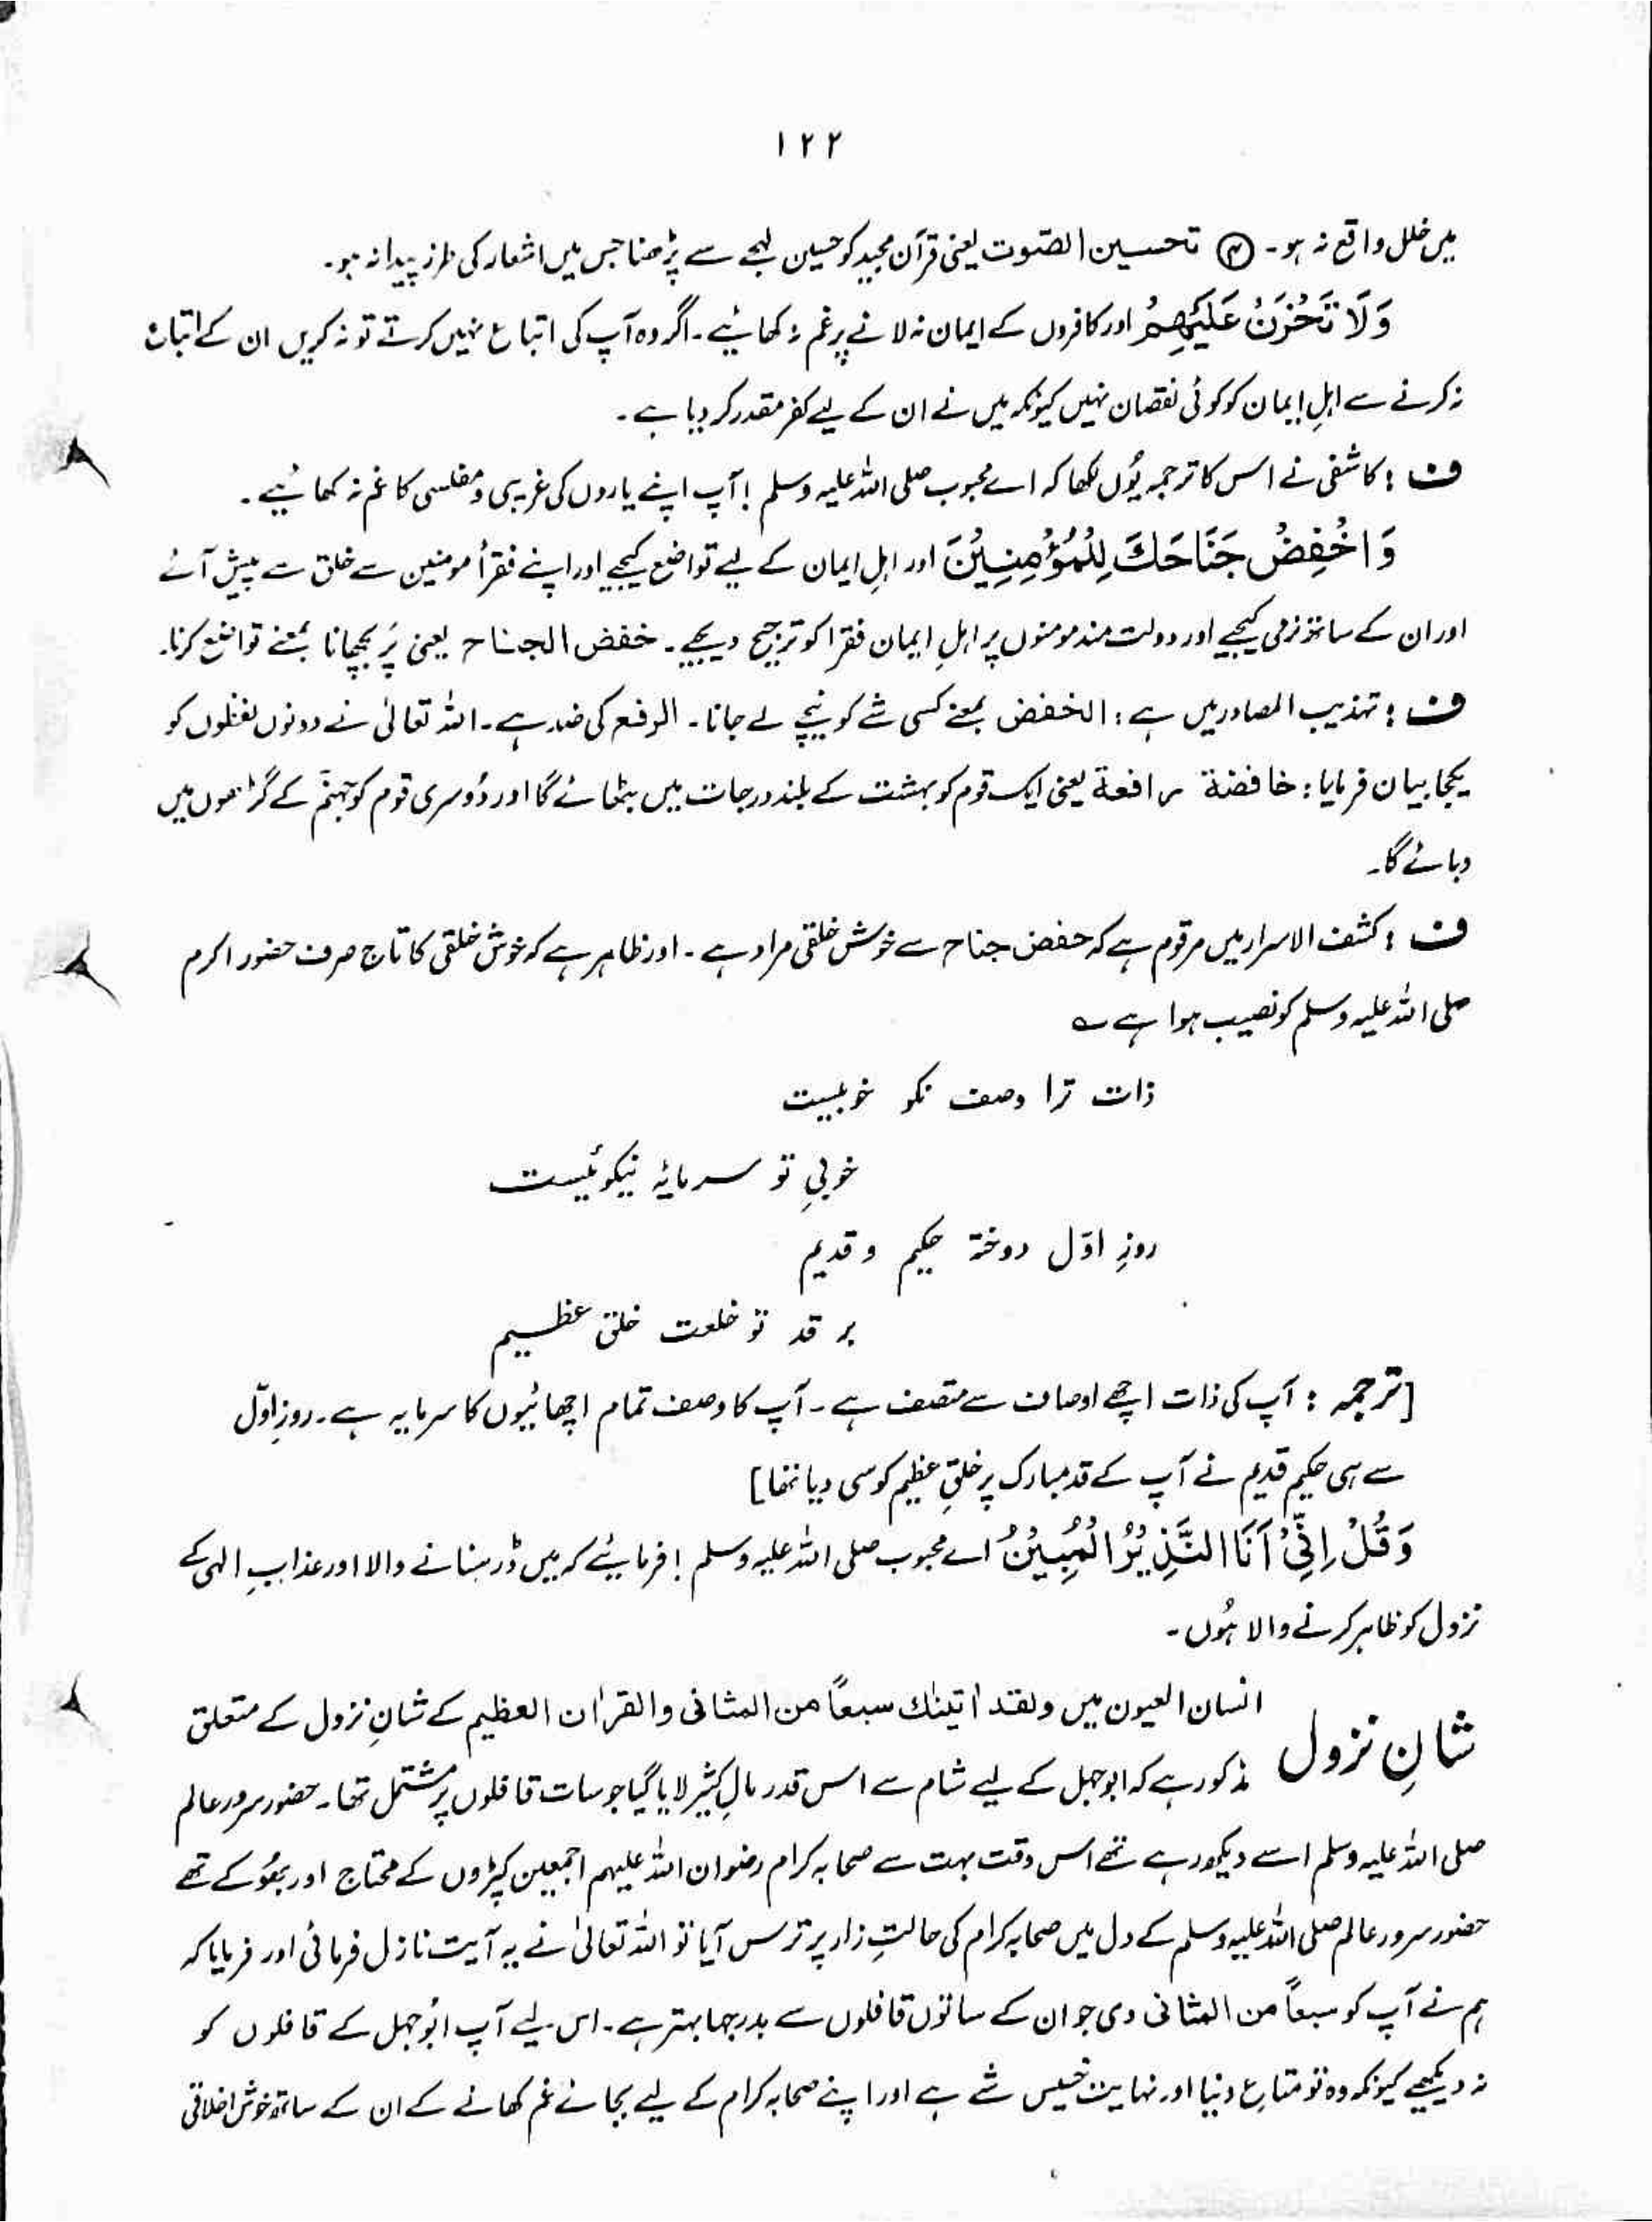 ۱۲۲
میں خلل واقع نہ ہو۔ ④ تحسین الصّوت یعنی قرآن مجید کو حسین لہجے سے پڑھنا جس میں اشعار کی طرز پیدا نہ ہو۔
وَلَا تَحْزَنْ عَلَیْهِمْ اور کافروں کے ایمان نہ لانے پر غم نہ کھائیے۔ اگر وہ آپ کی اتباع نہیں کرتے تو نہ کریں ان کے اتباع
نہ کرنے سے اہلِ ایمان کو کوئی نقصان نہیں کیونکہ میں نے ان کے لیے کفر مقدر کر دیا ہے۔
ف : کاشفی نے اس کا ترجمہ یُوں لکھا کہ اے محبوب صلی اللہ علیہ وسلم ! آپ اپنے یاروں کی غریبی و مفلسی کا غم نہ کھائیے۔
وَاخْفِضْ جَنَاحَكَ لِلْمُؤْمِنِیْنَ اور اہلِ ایمان کے لیے تواضع کیجیے اور اپنے فقرأ مومنین سے خلق سے پیش آئے
اور ان کے ساتھ نرمی کیجیے اور دولت مند مومنوں پر اہلِ ایمان فقرا کو ترجیح دیجیے۔ خفض الجناح یعنی پَر بچھانا بمعنے تواضع کرنا۔
ف : تہذیب المصادر میں ہے : الخفض بمعنے کسی شے کو نیچے لے جانا۔ الرفع کی ضد ہے۔ اللہ تعالیٰ نے دونوں لفظوں کو
یکجا بیان فرمایا : خافضة رافعة یعنی ایک قوم کو بہشت کے بلند درجات میں بٹھائے گا اور دُوسری قوم کو جہنّم کے گڑھوں میں
دبائے گا۔
ف : کشف الاسرار میں مرقوم ہے کہ حفض جناح سے خوش خلقی مراد ہے۔ اور ظاہر ہے کہ خوش خلقی کا تاج صرف حضور اکرم
صلی اللہ علیہ وسلم کو نصیب ہوا ہے ؎
ذات ترا وصف نکو خوبیست
خوبیِ تو سرمایۂ نیکوئیست
روزِ اوّل دوختہ حکیم و قدیم
بر قد تو خلعت خلق عظیم
[ترجمہ : آپ کی ذات اچھے اوصاف سے متصف ہے۔ آپ کا وصف تمام اچھائیوں کا سرمایہ ہے۔ روزِ اوّل
سے ہی حکیم قدیم نے آپ کے قد مبارک پر خلقِ عظیم کو سی دیا تھا]
وَقُلْ اِنِّیْ اَنَا النَّذِیْرُ الْمُبِیْنُ اے محبوب صلی اللہ علیہ وسلم ! فرمائیے کہ میں ڈر سنانے والا اور عذابِ الٰہی کے
نزول کو ظاہر کرنے والا ہُوں۔
شانِ نزول انسان العیون میں ولقد اٰتینٰك سبعاً من المثانی والقراٰن العظیم کے شانِ نزول کے متعلق
مذکور ہے کہ ابوجہل کے لیے شام سے اس قدر مالِ کثیر لایا گیا جو سات قافلوں پر مشتمل تھا۔ حضور سرور عالم
صلی اللہ علیہ وسلم اسے دیکھ رہے تھے اس وقت بہت سے صحابہ کرام رضوان اللہ علیہم اجمعین کپڑوں کے محتاج اور بھُوکے تھے
حضور سرور عالم صلی اللہ علیہ وسلم کے دل میں صحابہ کرام کی حالتِ زار پر ترس آیا تو اللہ تعالیٰ نے یہ آیت نازل فرمائی اور فرمایا کہ
ہم نے آپ کو سبعاً من المثانی دی جو ان کے ساتوں قافلوں سے بدرجہا بہتر ہے۔ اس لیے آپ ابُوجہل کے قافلوں کو
نہ دیکھیے کیونکہ وہ تو متاعِ دنیا اور نہایت خسیس شے ہے اور اپنے صحابہ کرام کے لیے بجائے غم کھانے کے ان کے ساتھ خوش اخلاقی